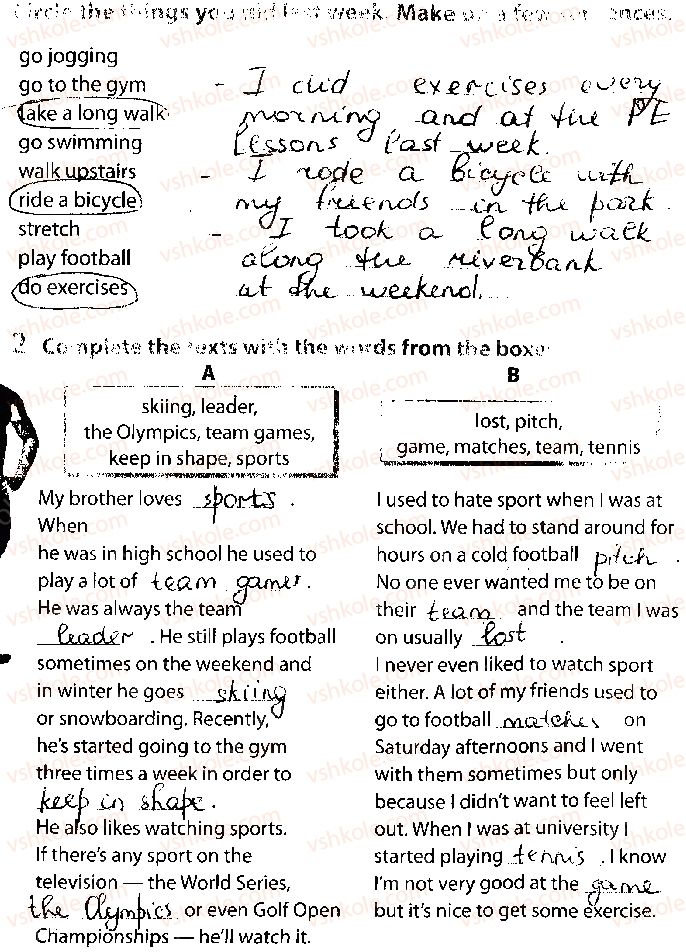 Circle the things you did last week. Make up a few sentences.
go jogging
go to the gym
take a long walk
go swimming
walk upstairs
ride a bicycle
stretch
play football
do exercises
- I did exercises every
morning and at the PE
lessons last week.
- I rode a bicycle with
my friends in the park.
- I took a long walk
along the riverbank
at the weekend.
2 Complete the texts with the words from the boxes
A
skiing, leader,
the Olympics, team games,
keep in shape, sports
My brother loves sports.
When
he was in high school he used to
play a lot of team games.
He was always the team
leader. He still plays football
sometimes on the weekend and
in winter he goes skiing
or snowboarding. Recently,
he's started going to the gym
three times a week in order to
keep in shape.
He also likes watching sports.
If there's any sport on the
television — the World Series,
the Olympics or even Golf Open
Championships — he'll watch it.
B
lost, pitch,
game, matches, team, tennis
I used to hate sport when I was at
school. We had to stand around for
hours on a cold football pitch.
No one ever wanted me to be on
their team and the team I was
on usually lost.
I never even liked to watch sport
either. A lot of my friends used to
go to football matches on
Saturday afternoons and I went
with them sometimes but only
because I didn't want to feel left
out. When I was at university I
started playing tennis. I know
I'm not very good at the game
but it's nice to get some exercise.
vshkole.com